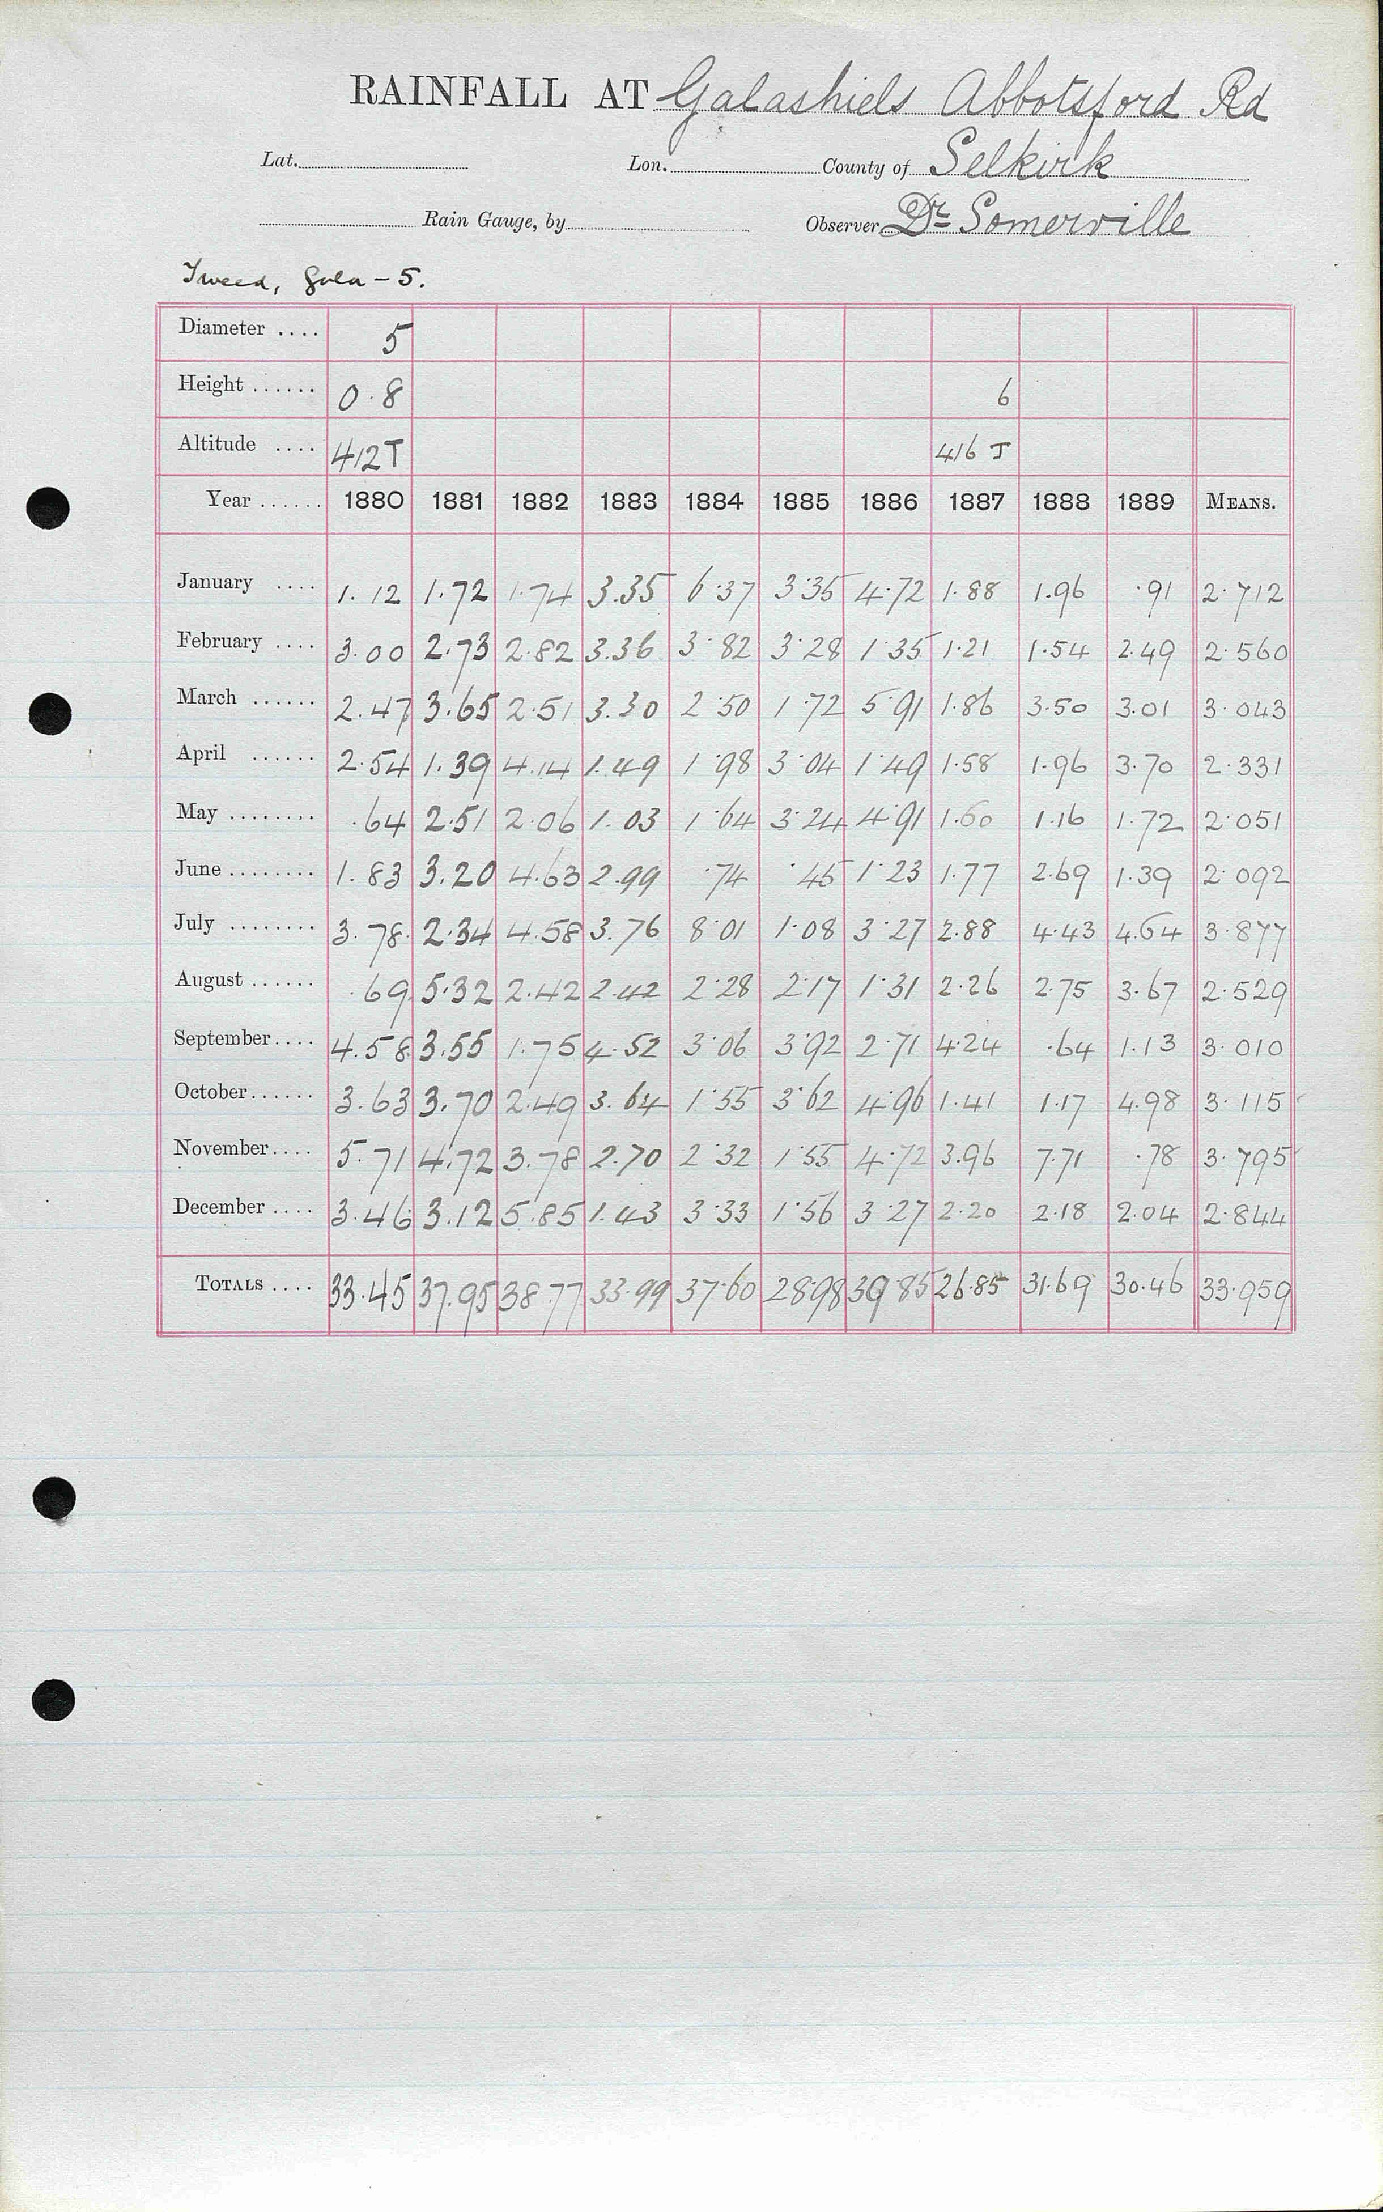 RAINFALL AT Galashiels Abbotsford Rd
Lat. Lon. County of Selkirk
Rain Gauge, by Observer Dr Somerville
Tweed, Gala - 5.
Diameter .... 5
Height ...... 0.8 6
Altitude .... 412T 416 T
Year ...... 1880 1881 1882 1883 1884 1885 1886 1887 1888 1889 MEANS.
January .... 1.12 1.72 1.74 3.35 6.37 3.35 4.72 1.88 1.96 .91 2.712
February .... 3.00 2.73 2.82 3.36 3.82 3.28 1.35 1.21 1.54 2.49 2.560
March ...... 2.47 3.65 2.51 3.30 2.50 1.72 5.91 1.86 3.50 3.01 3.043
April ...... 2.54 1.39 4.14 1.49 1.98 3.04 1.49 1.58 1.96 3.70 2.331
May ........ .64 2.51 2.06 1.03 1.64 3.24 4.91 1.60 1.16 1.72 2.051
June ........ 1.83 3.20 4.63 2.99 .74 .45 1.23 1.77 2.69 1.39 2.092
July ........ 3.78 2.34 4.58 3.76 8.01 1.08 3.27 2.88 4.43 4.64 3.877
August ...... .69 5.32 2.42 2.42 2.28 2.17 1.31 2.26 2.75 3.67 2.529
September .... 4.58 3.55 1.75 4.52 3.06 3.92 2.71 4.24 .64 1.13 3.010
October ...... 3.63 3.70 2.49 3.64 1.55 3.62 4.96 1.41 1.17 4.98 3.115
November .... 5.71 4.72 3.78 2.70 2.32 1.55 4.72 3.96 7.71 .78 3.795
December .... 3.46 3.12 5.85 1.43 3.33 1.56 3.27 2.20 2.18 2.04 2.844
TOTALS .... 33.45 37.95 38.77 33.99 37.60 28.98 39.85 26.85 31.69 30.46 33.959